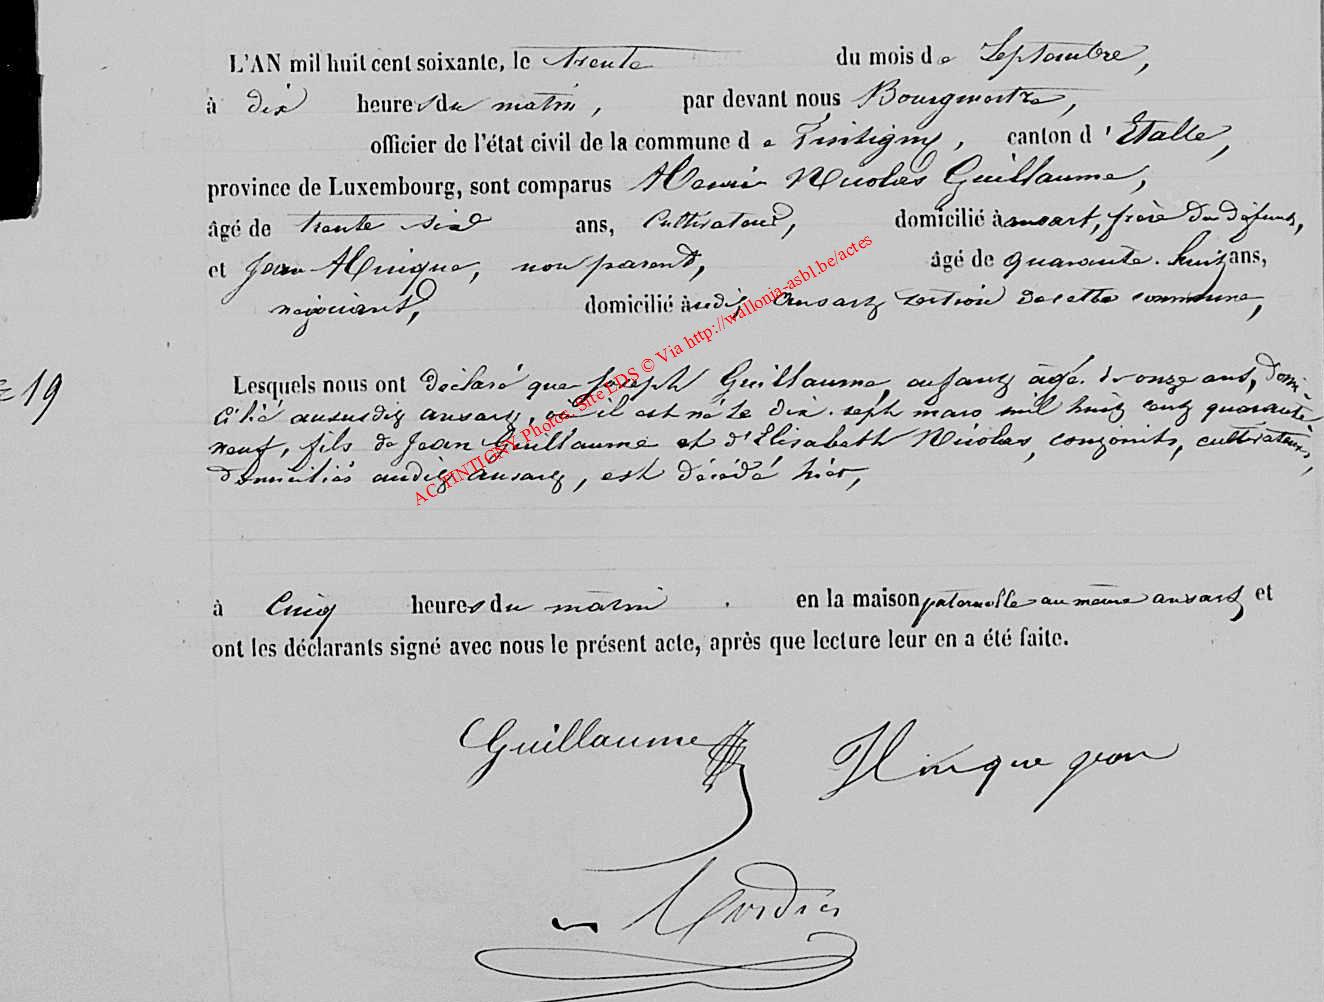 L'AN mil huit cent soixante, le trente du mois de Septembre,
à dix heures du matin, par devant nous Bourgmestre,
officier de l'état civil de la commune de Tintigny, canton d'Etalle,
province de Luxembourg, sont comparus Henri Nicolas Guillaume,
âgé de trente six ans, Cultivateur, domicilié à ansart, frère du défunt,
et Jean Hinque, non parent, âgé de quarante-huit ans,
négociant, domicilié à ansart section de cette commune,
N° 19
Lesquels nous ont déclaré que Joseph Guillaume, enfant âgé de onze ans, domi-
cilié au susdit ansart, où il est né le dix-sept mars mil huit cent quarante-
neuf, fils de Jean Guillaume et d'Elisabeth Nicolas, conjoints, cultivateurs,
domiciliés audit ansart, est décédé hier,
AC TINTIGNY Photos. Site EDS © Via http://wallonia-asbl.be/actes
à Cinq heures du matin en la maison paternelle au même ansart et
ont les déclarants signé avec nous le présent acte, après que lecture leur en a été faite.
Guillaume Hinque jean